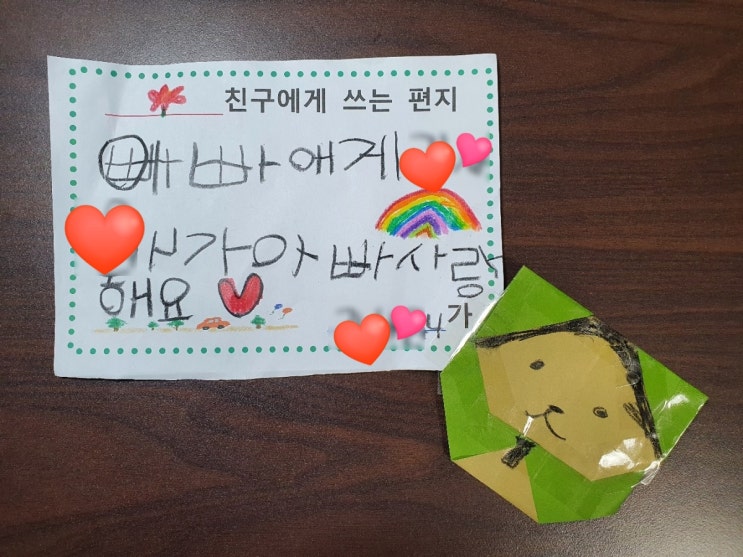 친구에게 쓰는 편지
아빠애게
가아빠사랑
해요
가